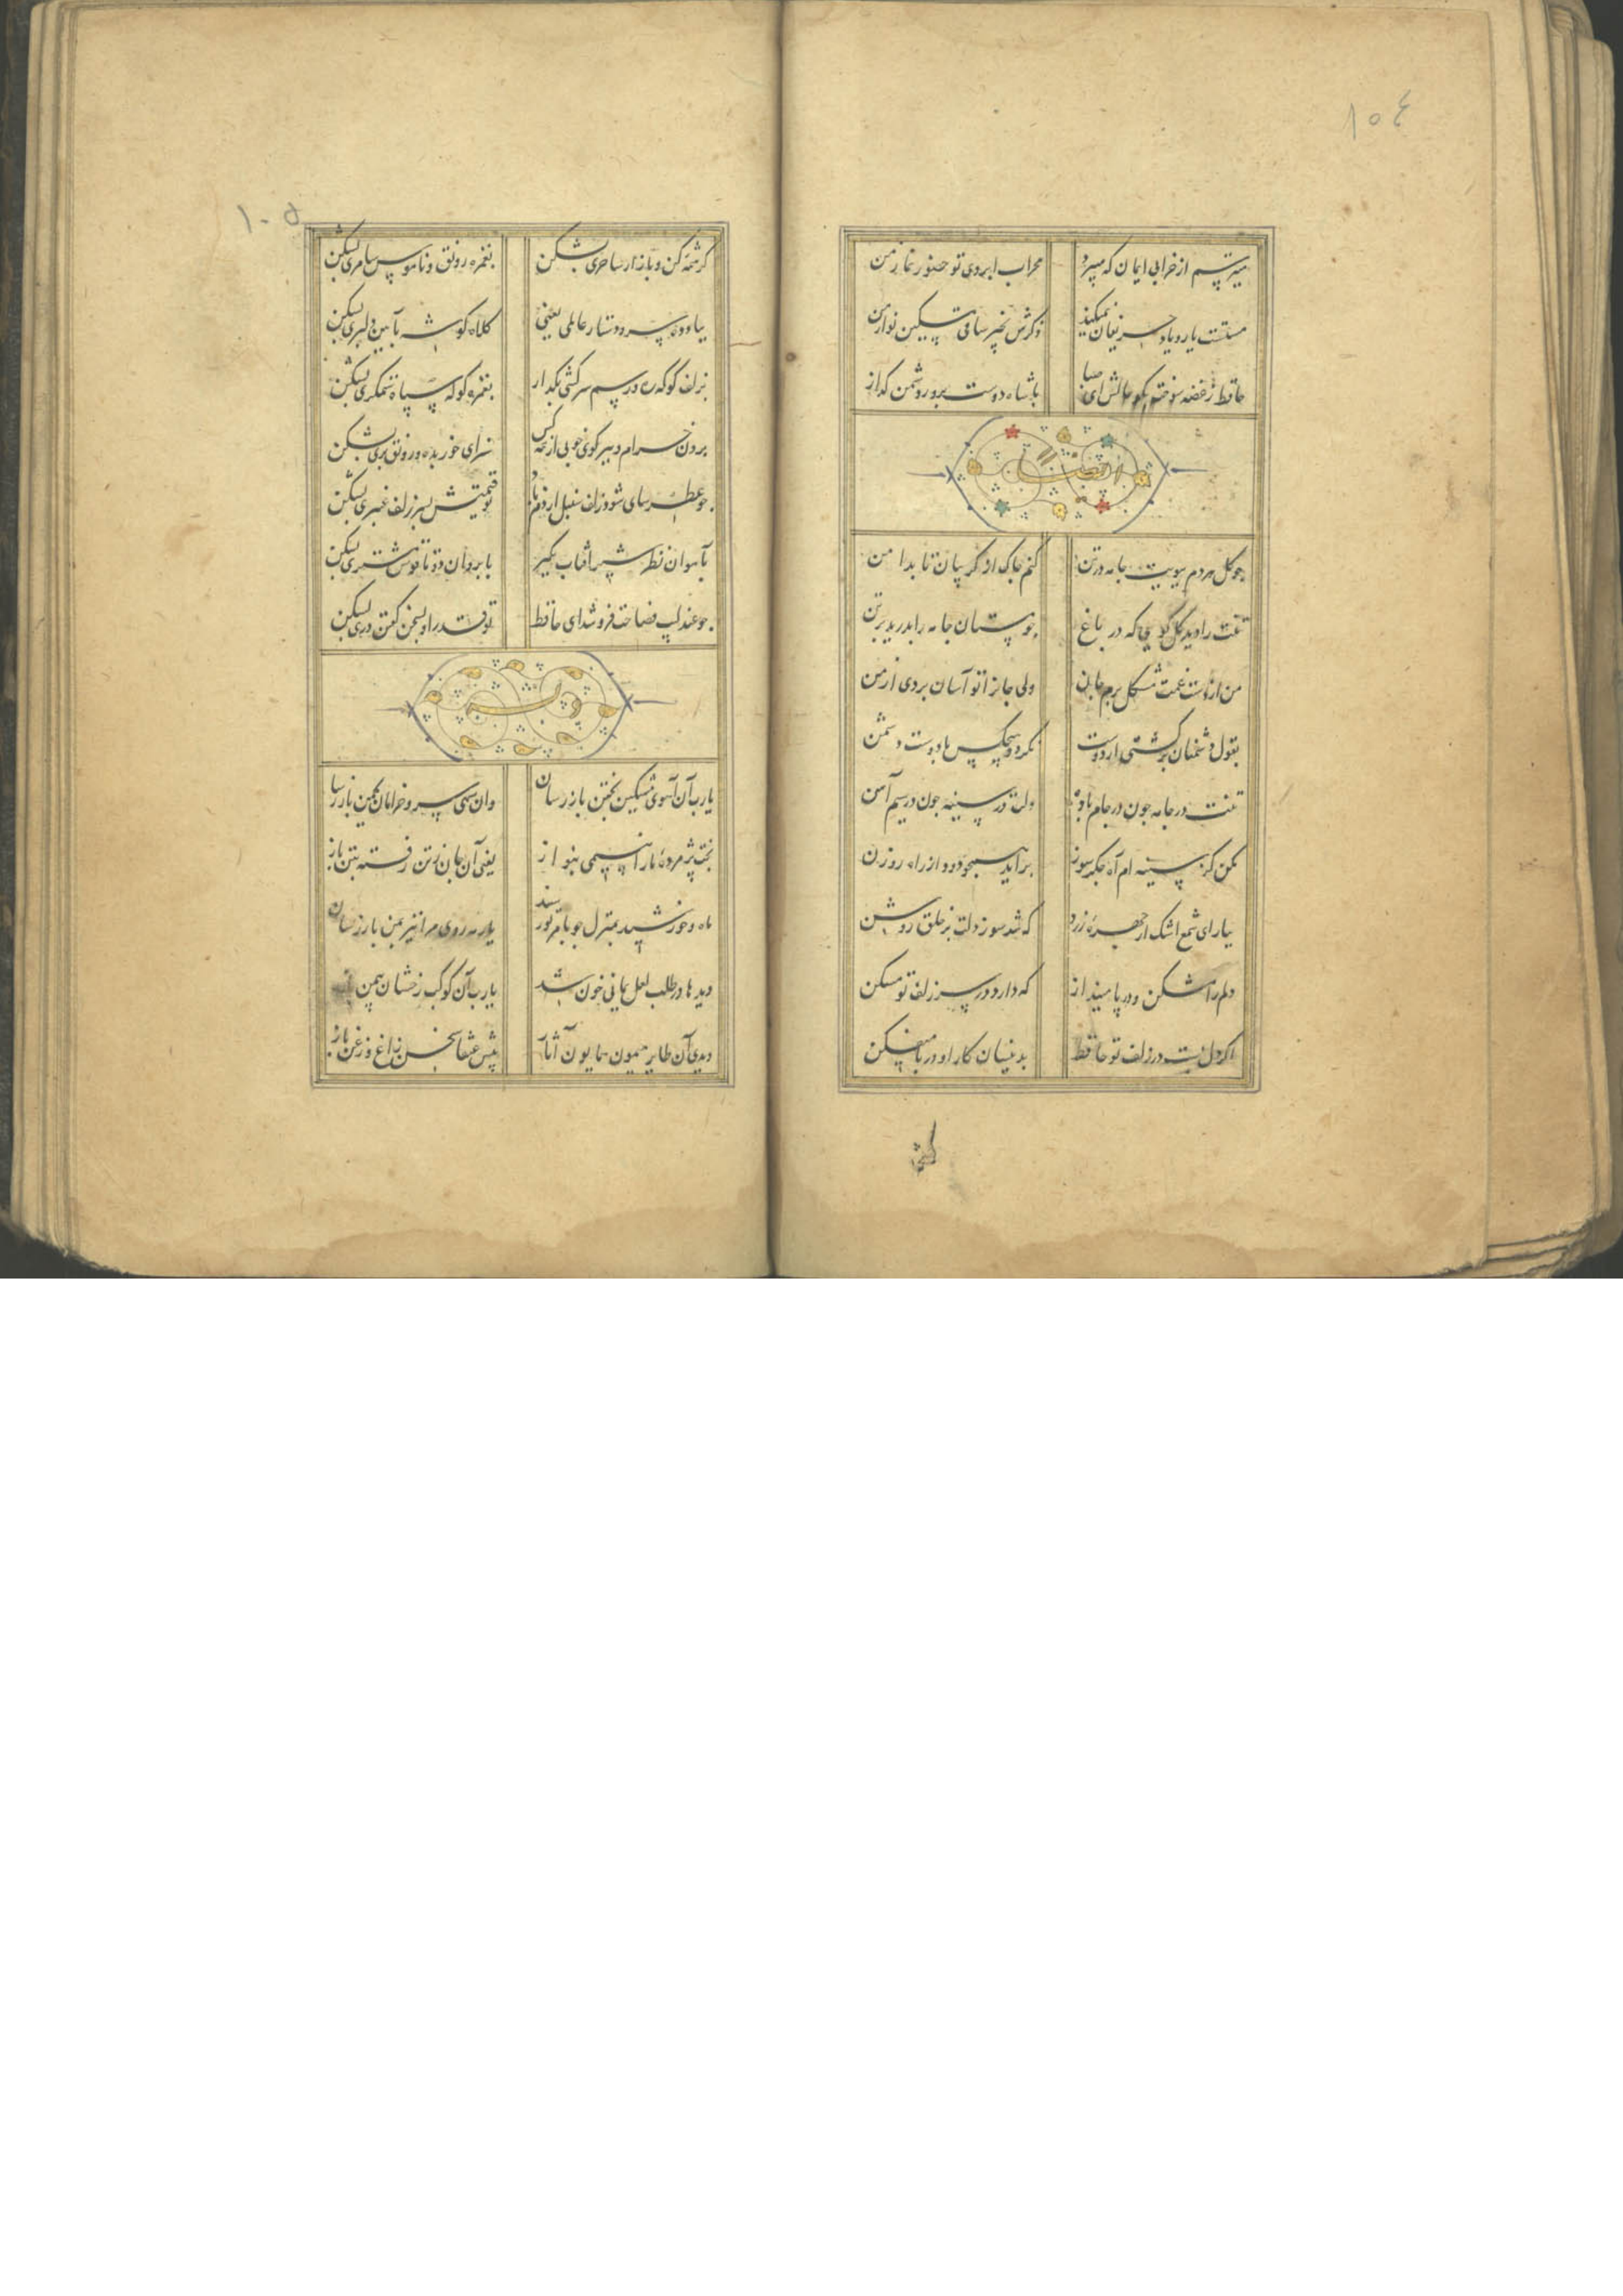 ۱۰۴
میترسم از خرابی ایمان که میبرد محراب ابروی تو حضور نماز من
مستست یار و یاد حریفان نمیکند ذکرش بخیر ساقی مسکین نواز من
حافظ ز غصه سوخت بگو حالش ای صبا با شاه دوست پرور دشمن گداز
ایضا
چو گل هر دم ببویت جامه در تن کنم چاک از گریبان تا بدامن
تنت را دید گل گویی که در باغ چو مستان جامه را بدرید بر تن
من از دست غمت مشکل برم جان ولی جانرا تو آسان بردی از من
بقول دشمنان برگشتی از دوست نگردد هیچکس با دوست دشمن
تنت در جامه چون در جام باده دلت در سینه چون در سیم آهن
مکن کز سینه ام آه جگرسوز برآید همچو دود از راه روزن
ببار ای شمع اشک از چهره زرد که شد سوز دلت بر خلق روشن
دلم را مشکن و در پا مینداز که دارد در سر زلف تو مسکن
اگر دل بست در زلف تو حافظ بدینسان کار او در پا میفکن
کرشمه
۱۰۵
کرشمه کن و بازار ساحری بشکن بغمزه رونق و ناموس سامری بشکن
بباد ده سر و دستار عالمی یعنی کلاه گوشه بآیین دلبری بشکن
بزلف گو که ره و رسم سرکشی بگذار بغمزه گو که سپاه ستمگری بشکن
برون خرام و ببر گوی خوبی از همه کس سزای حور بده و رونق پری بشکن
چو عطرسای شود زلف سنبل از دم باد تو قیمتش بسر زلف عنبری بشکن
بآهوان نظر شیر آفتاب بگیر بابروان دوتا قوس مشتری بشکن
چو عندلیب فصاحت فروشد ای حافظ تو قدر او بسخن گفتن دری بشکن
وله
یارب آن آهوی مشکین بختن باز رسان وان سهی سرو خرامان بچمن باز رسا
بخت پژمرده ما را بنسیمی بنواز یعنی آن جان ز تن رفته بتن باز
ماه و خورشید بمنزل چو بامر تو رسند یار مه روی مرا نیز بمن باز رسان
دیدها در طلب لعل یمانی خون شد یارب آن کوکب رخشان بیمن
دیدی آن طایر میمون همایون آثار پیش عنقا سخن زاغ و زغن باز